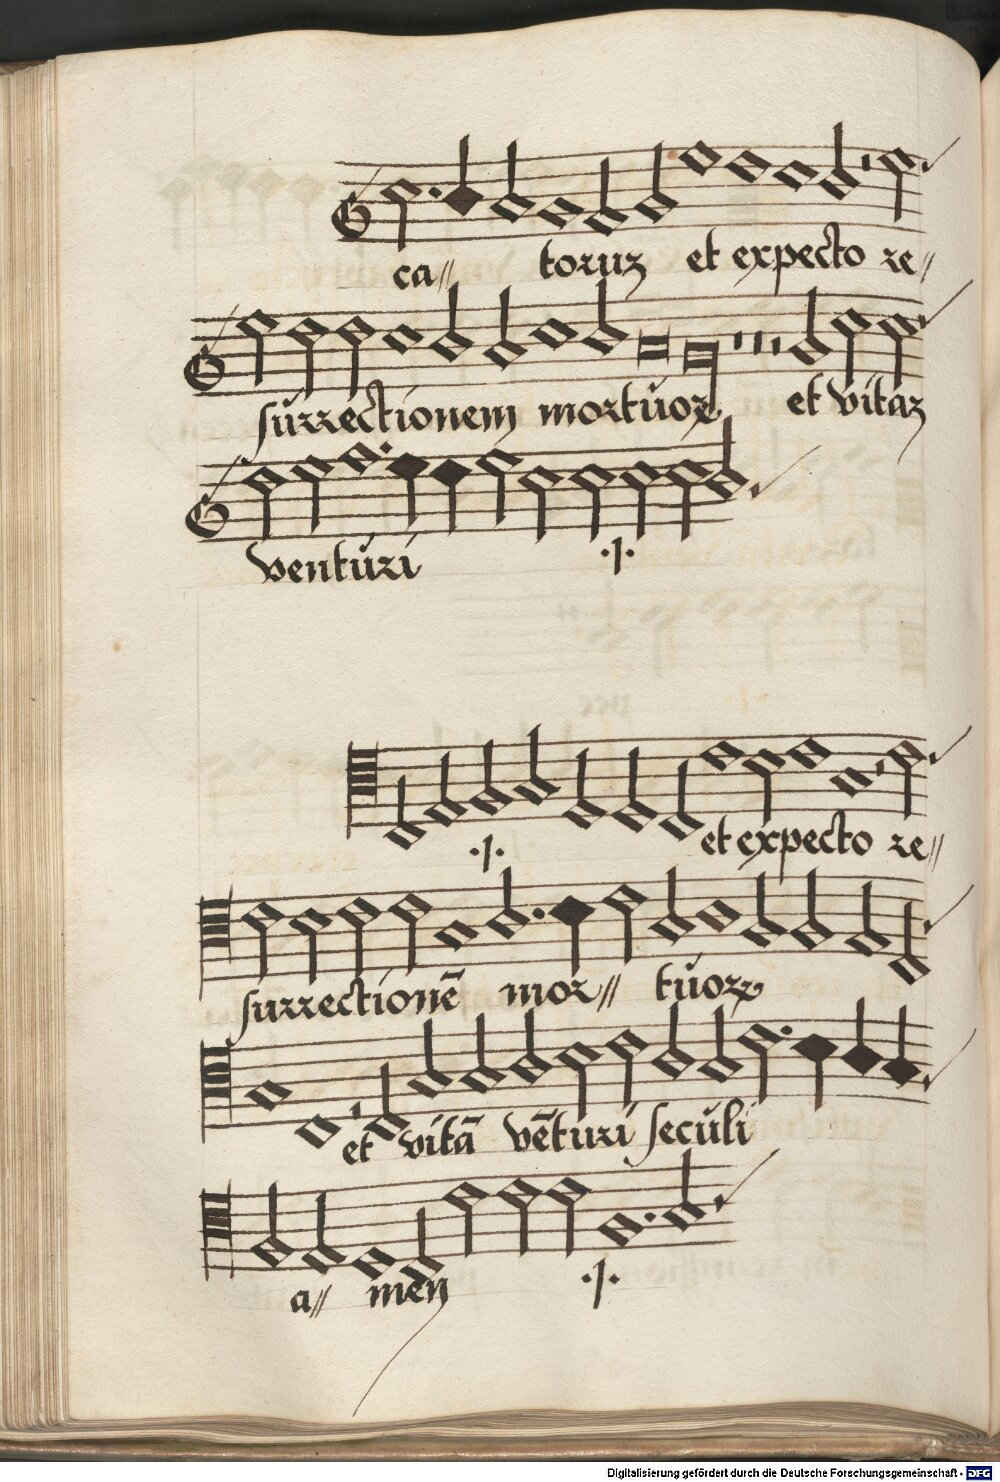 ca// toruz et expecto re//
surrectionem mortuorꝝ et vitaz
venturi ·J·
·J· et expecto re//
surrectionē mor// tuorꝝ
et vitā vēturi seculi
a// men ·J·
Digitalisierung gefördert durch die Deutsche Forschungsgemeinschaft - DFG